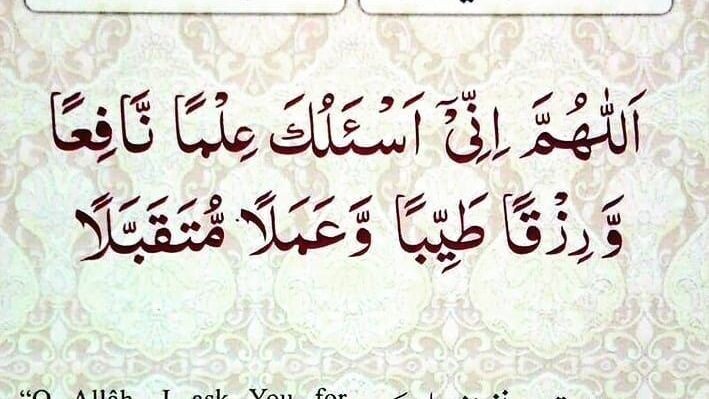 اَللّٰهُمَّ اِنِّيْٓ اَسْئَلُكَ عِلْمًا نَّافِعًا
وَّ رِزْقًا طَيِّبًا وَّعَمَلًا مُّتَقَبَّلًا
“O Allâh, I ask You for